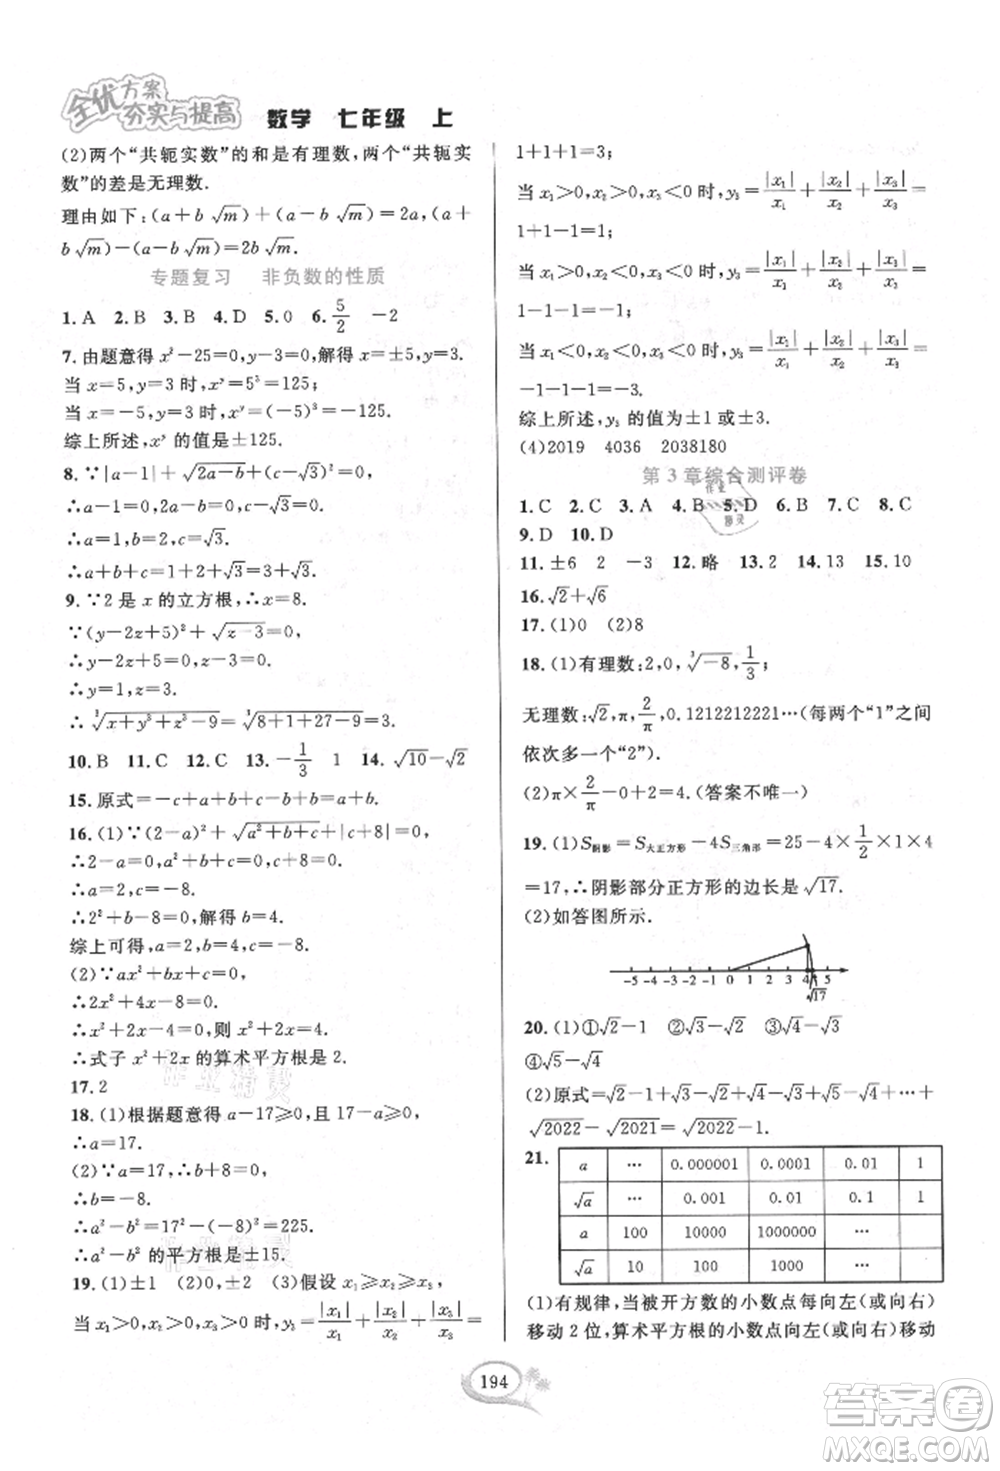 全优方案
夯实与提高 数学 七年级 上
(2)两个“共轭实数”的和是有理数,两个“共轭实
数”的差是无理数.
理由如下:(a+b√m)+(a−b√m)=2a,(a+
b√m)−(a−b√m)=2b√m.
专题复习 非负数的性质
1. A 2. B 3. B 4. D 5. 0 6. 5/2 −2
7. 由题意得 x²−25=0,y−3=0,解得 x=±5,y=3.
当 x=5,y=3 时,xʸ=5³=125;
当 x=−5,y=3 时,xʸ=(−5)³=−125.
综上所述,xʸ 的值是±125.
8. ∵|a−1|+√(2a−b)+(c−√3)²=0,
∴a−1=0,2a−b=0,c−√3=0,
∴a=1,b=2,c=√3,
∴a+b+c=1+2+√3=3+√3.
9. ∵2 是 x 的立方根,∴x=8.
∵(y−2x+5)²+√(z−3)=0,
∴ y=1,z=3.
∴ ³√(x+y³+z³−9)=³√(8+1+27−9)=3.
10. B 11. C 12. C 13. −1/3 1 14. √10−√2
15. 原式=−c+a+b+c−a=b.
16. (1)∵(2−a)²+√(a²+b+c)+|c+8|=0,
∴2−a=0,a²+b+c=0,c+8=0,
∴a=2,c=−8,
∴2²+b−8=0,解得 b=4.
综上可得,a=2,b=4,c=−8.
(2)∵ax²+bx+c=0,
∴2x²+4x−8=0,
∴x²+2x−4=0,则 x²+2x=4,
∴式子 x²+2x 的算术平方根是 2.
17. 2
18. (1)根据题意得 a−17≥0,且 17−a≥0,
∴a=17.
(2)∵a=17,∴b+8=0,
∴b=−8.
∴a²−b²=17²−(−8)²=225.
∴a²−b² 的平方根是±15.
19. (1)±1 (2)0,±2 (3)假设 x₁≥x₂≥x₃,
当 x₁>0,x₂>0,x₃>0 时,y₃=|x₁|/x₁+|x₂|/x₂+|x₃|/x₃=
1+1+1=3;
当 x₁>0,x₂>0,x₃<0 时,y₃=|x₁|/x₁+|x₂|/x₂+|x₃|/x₃=
1+1−1=1;
当 x₁>0,x₂<0,x₃<0 时,y₃=|x₁|/x₁+|x₂|/x₂+|x₃|/x₃=
1−1−1=−1;
当 x₁<0,x₂<0,x₃<0 时,y₃=|x₁|/x₁+|x₂|/x₂+|x₃|/x₃=
−1−1−1=−3.
综上所述,y₃ 的值为±1 或±3.
(4)2019 4036 2038180
第 3 章综合测评卷
1. C 2. C 3. A 4. B 5. D 6. B 7. D 8. C
9. D 10. D
11. ±6 2 −3 12. 略 13. 2 14. 13 15. 10
16. √2+√6
17. (1)0 (2)8
18. (1)有理数:2,0,³√−8,1/3;
无理数:√2,π,2/π,0.1212212221…(每两个“1”之间
依次多一个“2”).
(2)π×2/π−0+2=4.(答案不唯一)
19. (1)S阴影=S大正方形−4S三角形=25−4×1/2×1×4
=17,∴阴影部分正方形的边长是√17.
(2)如答图所示.
−5−4−3−2−1 0 1 2 3 4 5
√17
20. (1)①√2−1 ②√3−√2 ③√4−√3
④√5−√4
(2)原式=√2−1+√3−√2+√4−√3+√5−√4+…+
√2022−√2021=√2022−1.
21. a … 0.000001 0.0001 0.01 1
√a … 0.001 0.01 0.1 1
a 100 10000 1000000 …
√a 10 100 1000 …
(1)有规律,当被开方数的小数点每向左(或向右)
移动 2 位,算术平方根的小数点向左(或向右)移动
194
答案卷
MXQE.COM